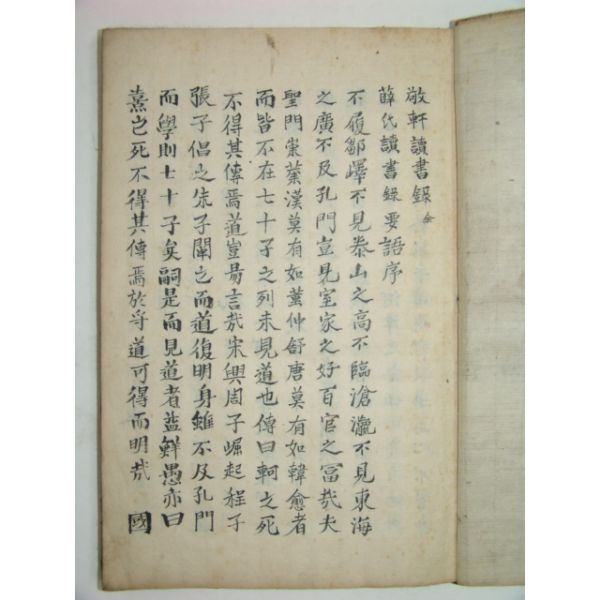 敬軒讀書錄 全
薛氏讀書錄要語序
不履鄒嶧不見泰山之高不臨滄瀛不見東海
之廣不及孔門豈見室家之好百官之冨㦲夫
聖門崇業漢莫有如董仲舒唐莫有如韓愈者
而皆不在七十子之列未見道也傳曰軻之死
不得其傳焉道豈易言㦲宋興周子崛起程子
張子倡之朱子闡之而道復明身雖不及孔門
而學則七十子矣嗣是而見道者蓋鮮愚亦曰
熹之死不得其傳焉於乎道可得而明㦲 國